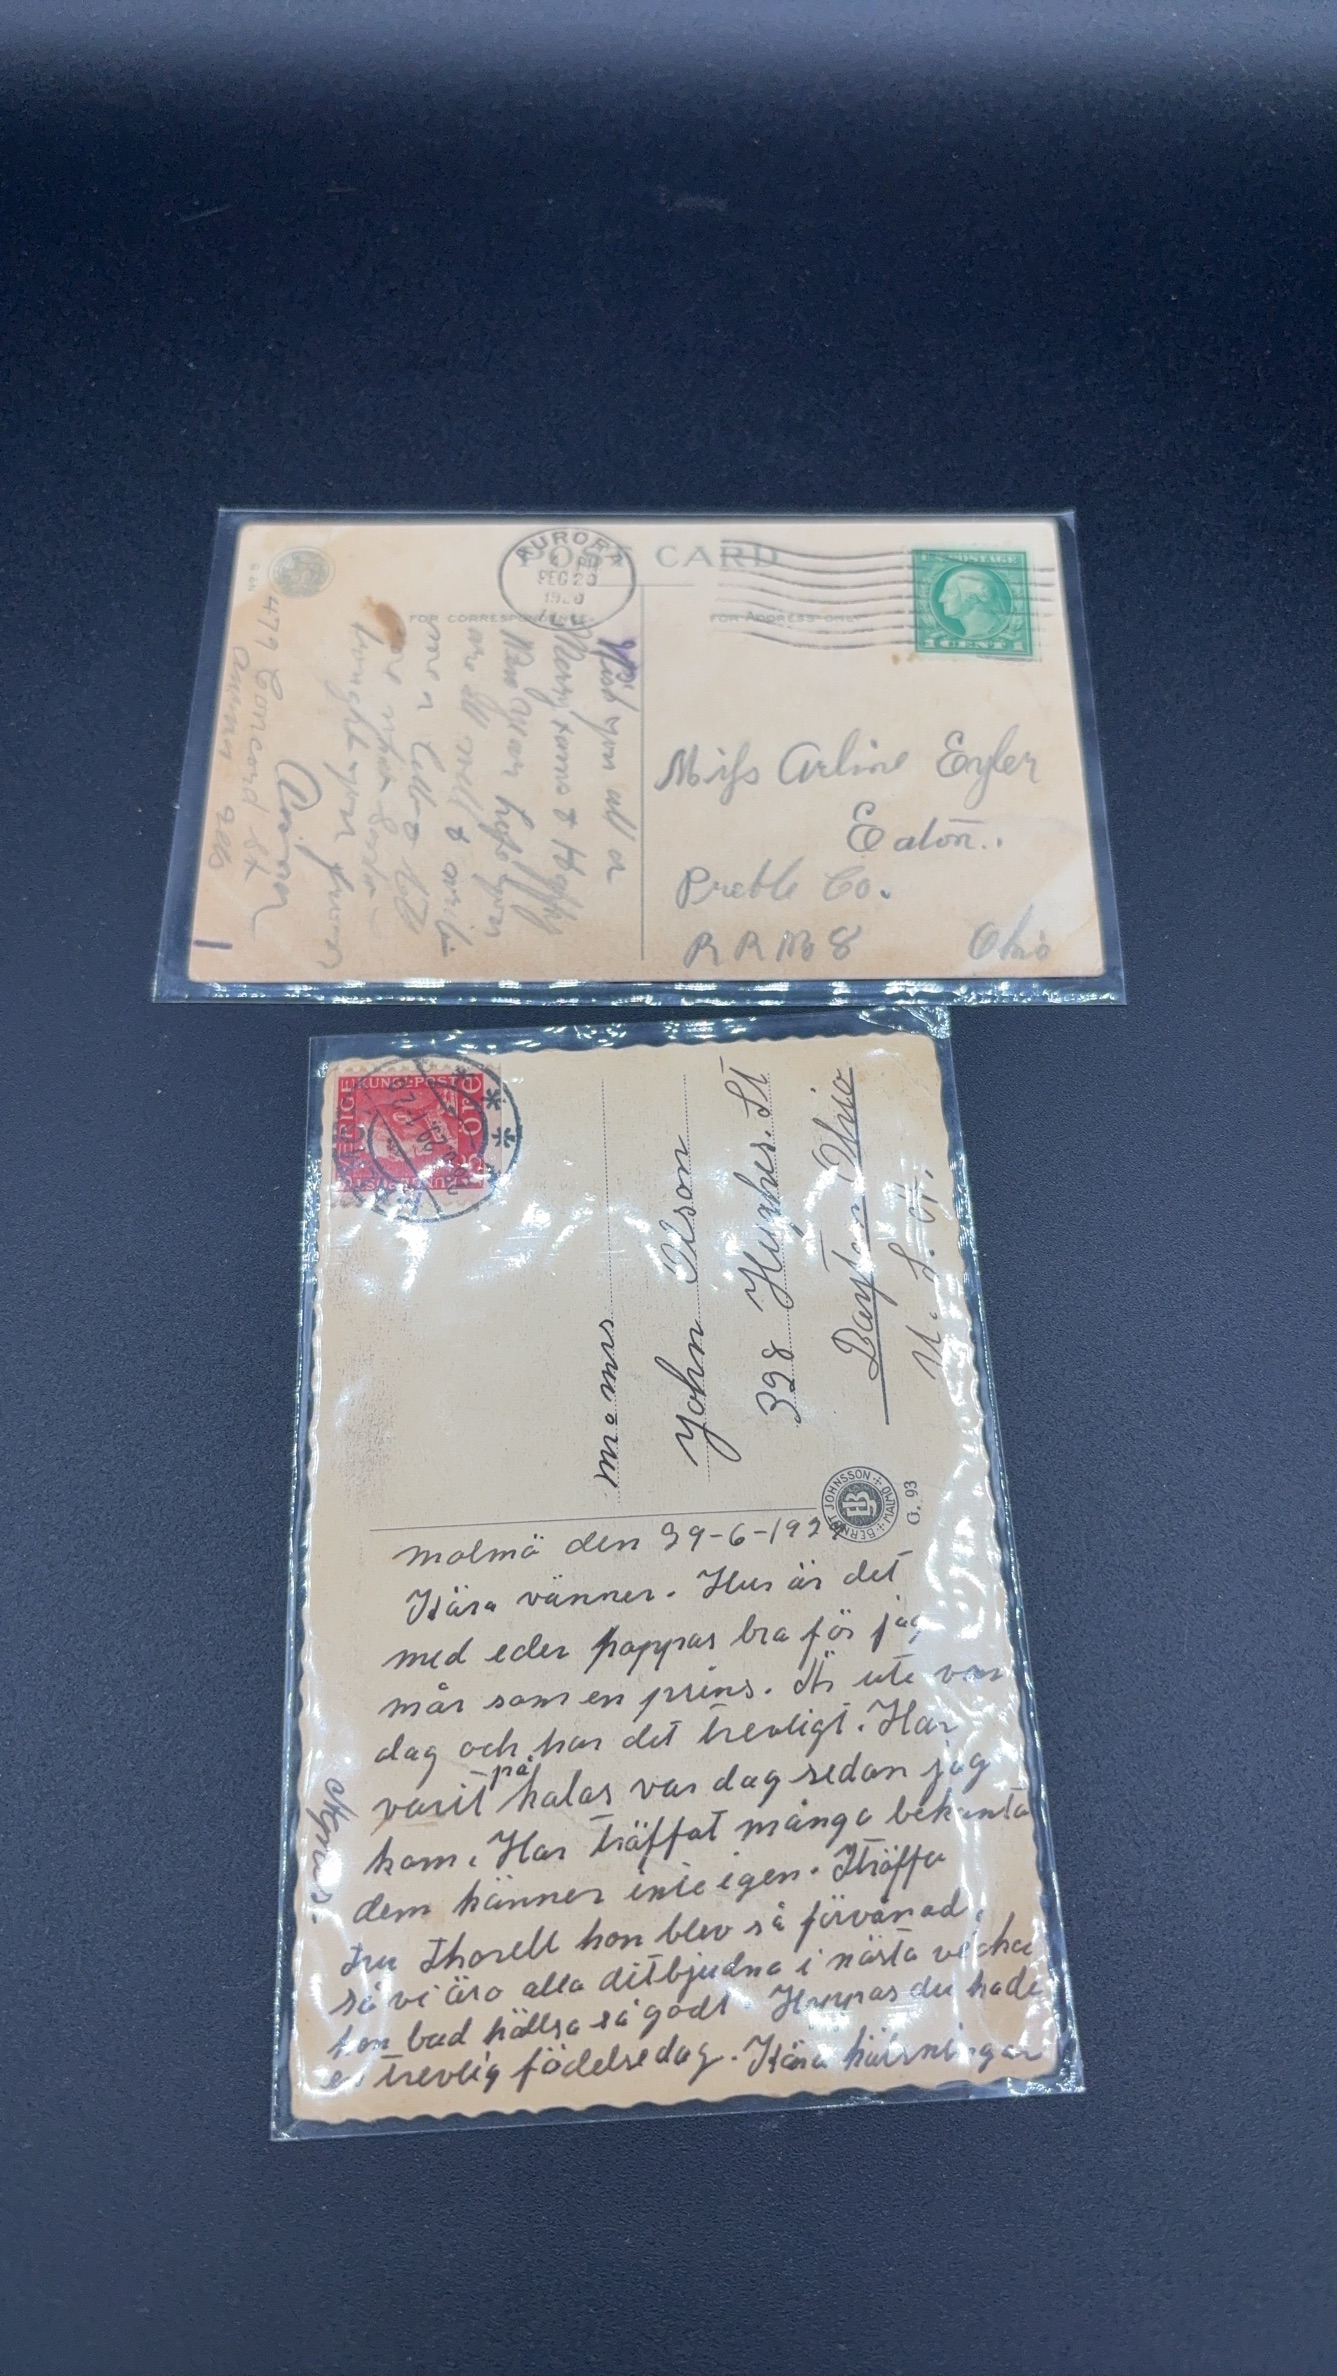 POST CARD
AURORA
DEC 23
FOR CORRESPONDENCE
FOR ADDRESS ONLY
U.S. POSTAGE
1 CENT 1
Miss Arline Eyler
Eaton.
Preble Co.
R R No 8 Ohio
Wish you all a
Merry xmas & Happy
New Year hope you
are all well &
479 Concord St
Aurora Ills
SVERIGE
KUNGL. POST
ÖRE
mr o mrs
John Olson
328 Hughes. St
Dayton Ohio
U. S. A.
BERNDT JOHNSSON MALMÖ
G. 93
malmö den 29-6-192
Kära vänner. Hur är det
med eder hoppas bra för jag
mår som en prins. Är ute var
dag och har det trevligt. Har
varit på kalas var dag sedan jag
kom. Har träffat många bekanta
dem känner inte igen. Träffa
fru Thorell hon blev så förvånad,
så vi äro alla ditbjudna i nästa vecka
hon bad hällsa så godt. Hoppas du hade
en trevlig födelsedag. Kära hälsningar
Agnes.